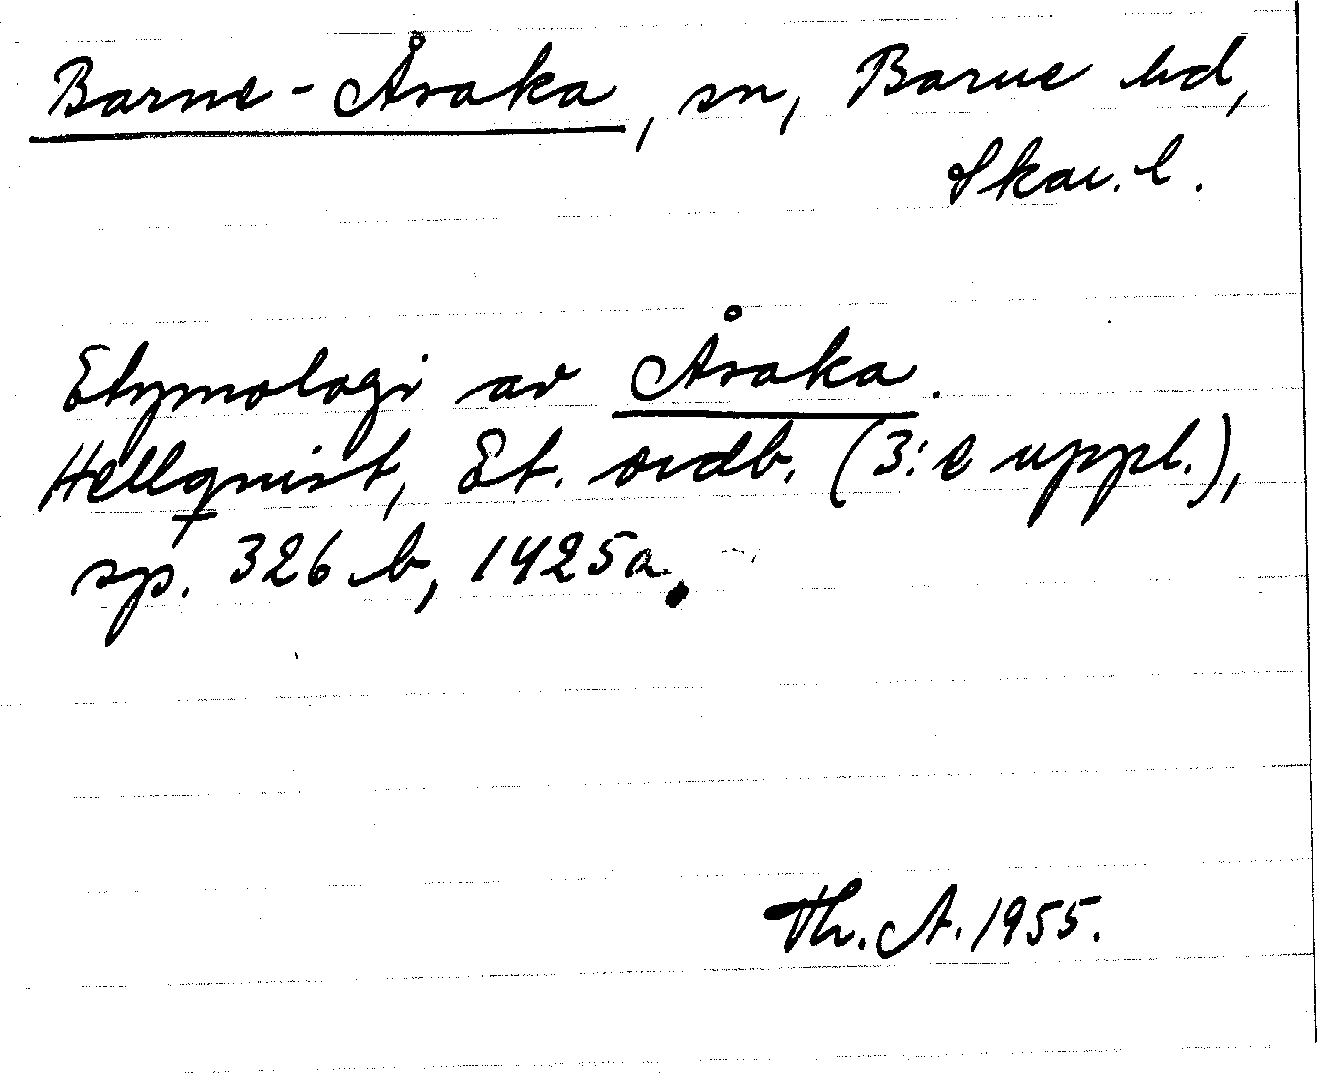 Barne-Åsaka, sn, Barne hd,
Skar. l.
Etymologi av Åsaka.
Hellquist, Et. ordb. (3:e uppl.),
sp. 326 b, 1425a.
Th. A. 1955.